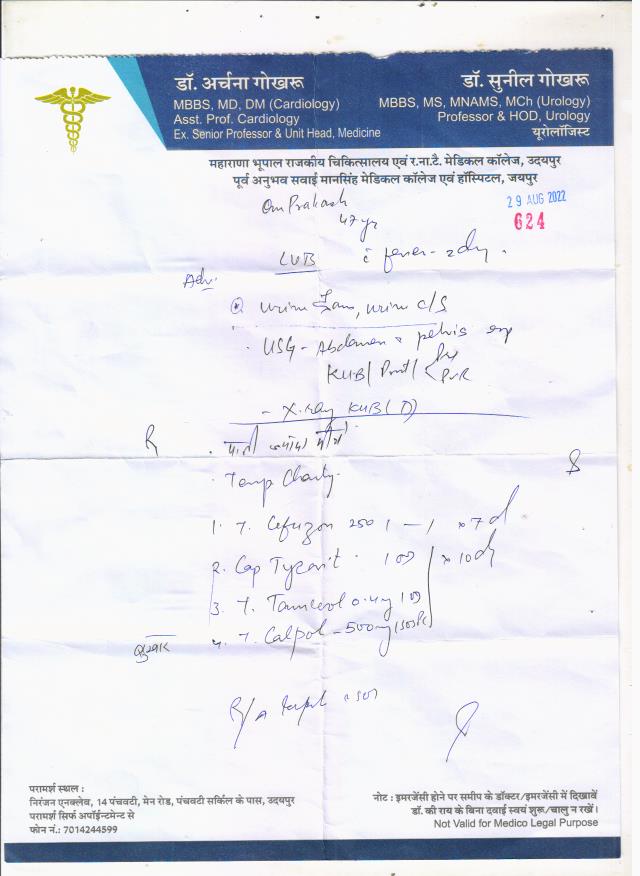 डॉ. अर्चना गोखरू
MBBS, MD, DM (Cardiology)
Asst. Prof. Cardiology
Ex. Senior Professor & Unit Head, Medicine
डॉ. सुनील गोखरू
MBBS, MS, MNAMS, MCh (Urology)
Professor & HOD, Urology
यूरोलॉजिस्ट
महाराणा भूपाल राजकीय चिकित्सालय एवं र.ना.टै. मेडिकल कॉलेज, उदयपुर
पूर्व अनुभव सवाई मानसिंह मेडिकल कॉलेज एवं हॉस्पिटल, जयपुर
29 AUG 2022
624
Om Prakash
47 yr
fever - 2 day.
Adv.
urine, urine c/s
USG - Abdomen & pelvis
KUB / Prost / PVR
- X-ray KUB (D)
R
पानी ज्यादा पीये
Temp Charting
1. T. Cefuzon 250 1 — 1 x 7 d
2. Cap 1 OD x 10 day
3. T. 0.4mg 1 OD
बुखार 4. T. Calpol - 500mg 1 SOS
R/A SOS
परामर्श स्थल :
निरंजन एनक्लेव, 14 पंचवटी, मेन रोड, पंचवटी सर्किल के पास, उदयपुर
परामर्श सिर्फ अपॉईन्टमेन्ट से
फोन नं.: 7014244599
नोट : इमरजेंसी होने पर समीप के डॉक्टर/इमरजेंसी में दिखावें
डॉ. की राय के बिना दवाई स्वयं शुरू/चालु न रखें।
Not Valid for Medico Legal Purpose